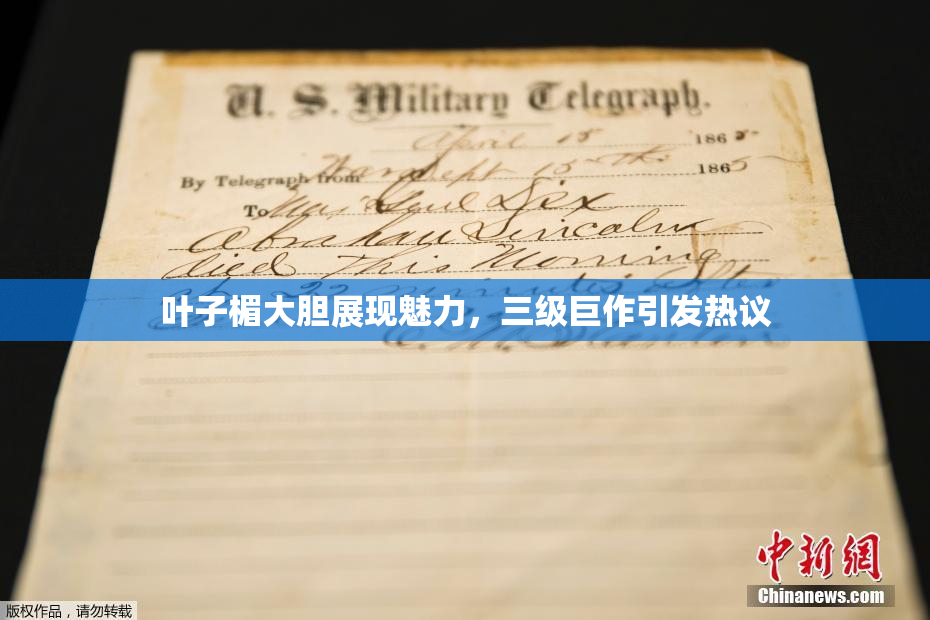 U. S. Military Telegraph.
April 15 1865.
By Telegraph from War Dept 15th 1865
To Maj Genl Dix
Abraham Lincoln
died This Morning
at 22 minutes after
叶子楣大胆展现魅力，三级巨作引发热议
E. M. Stanton
中新網
Chinanews.com
版权作品，请勿转载